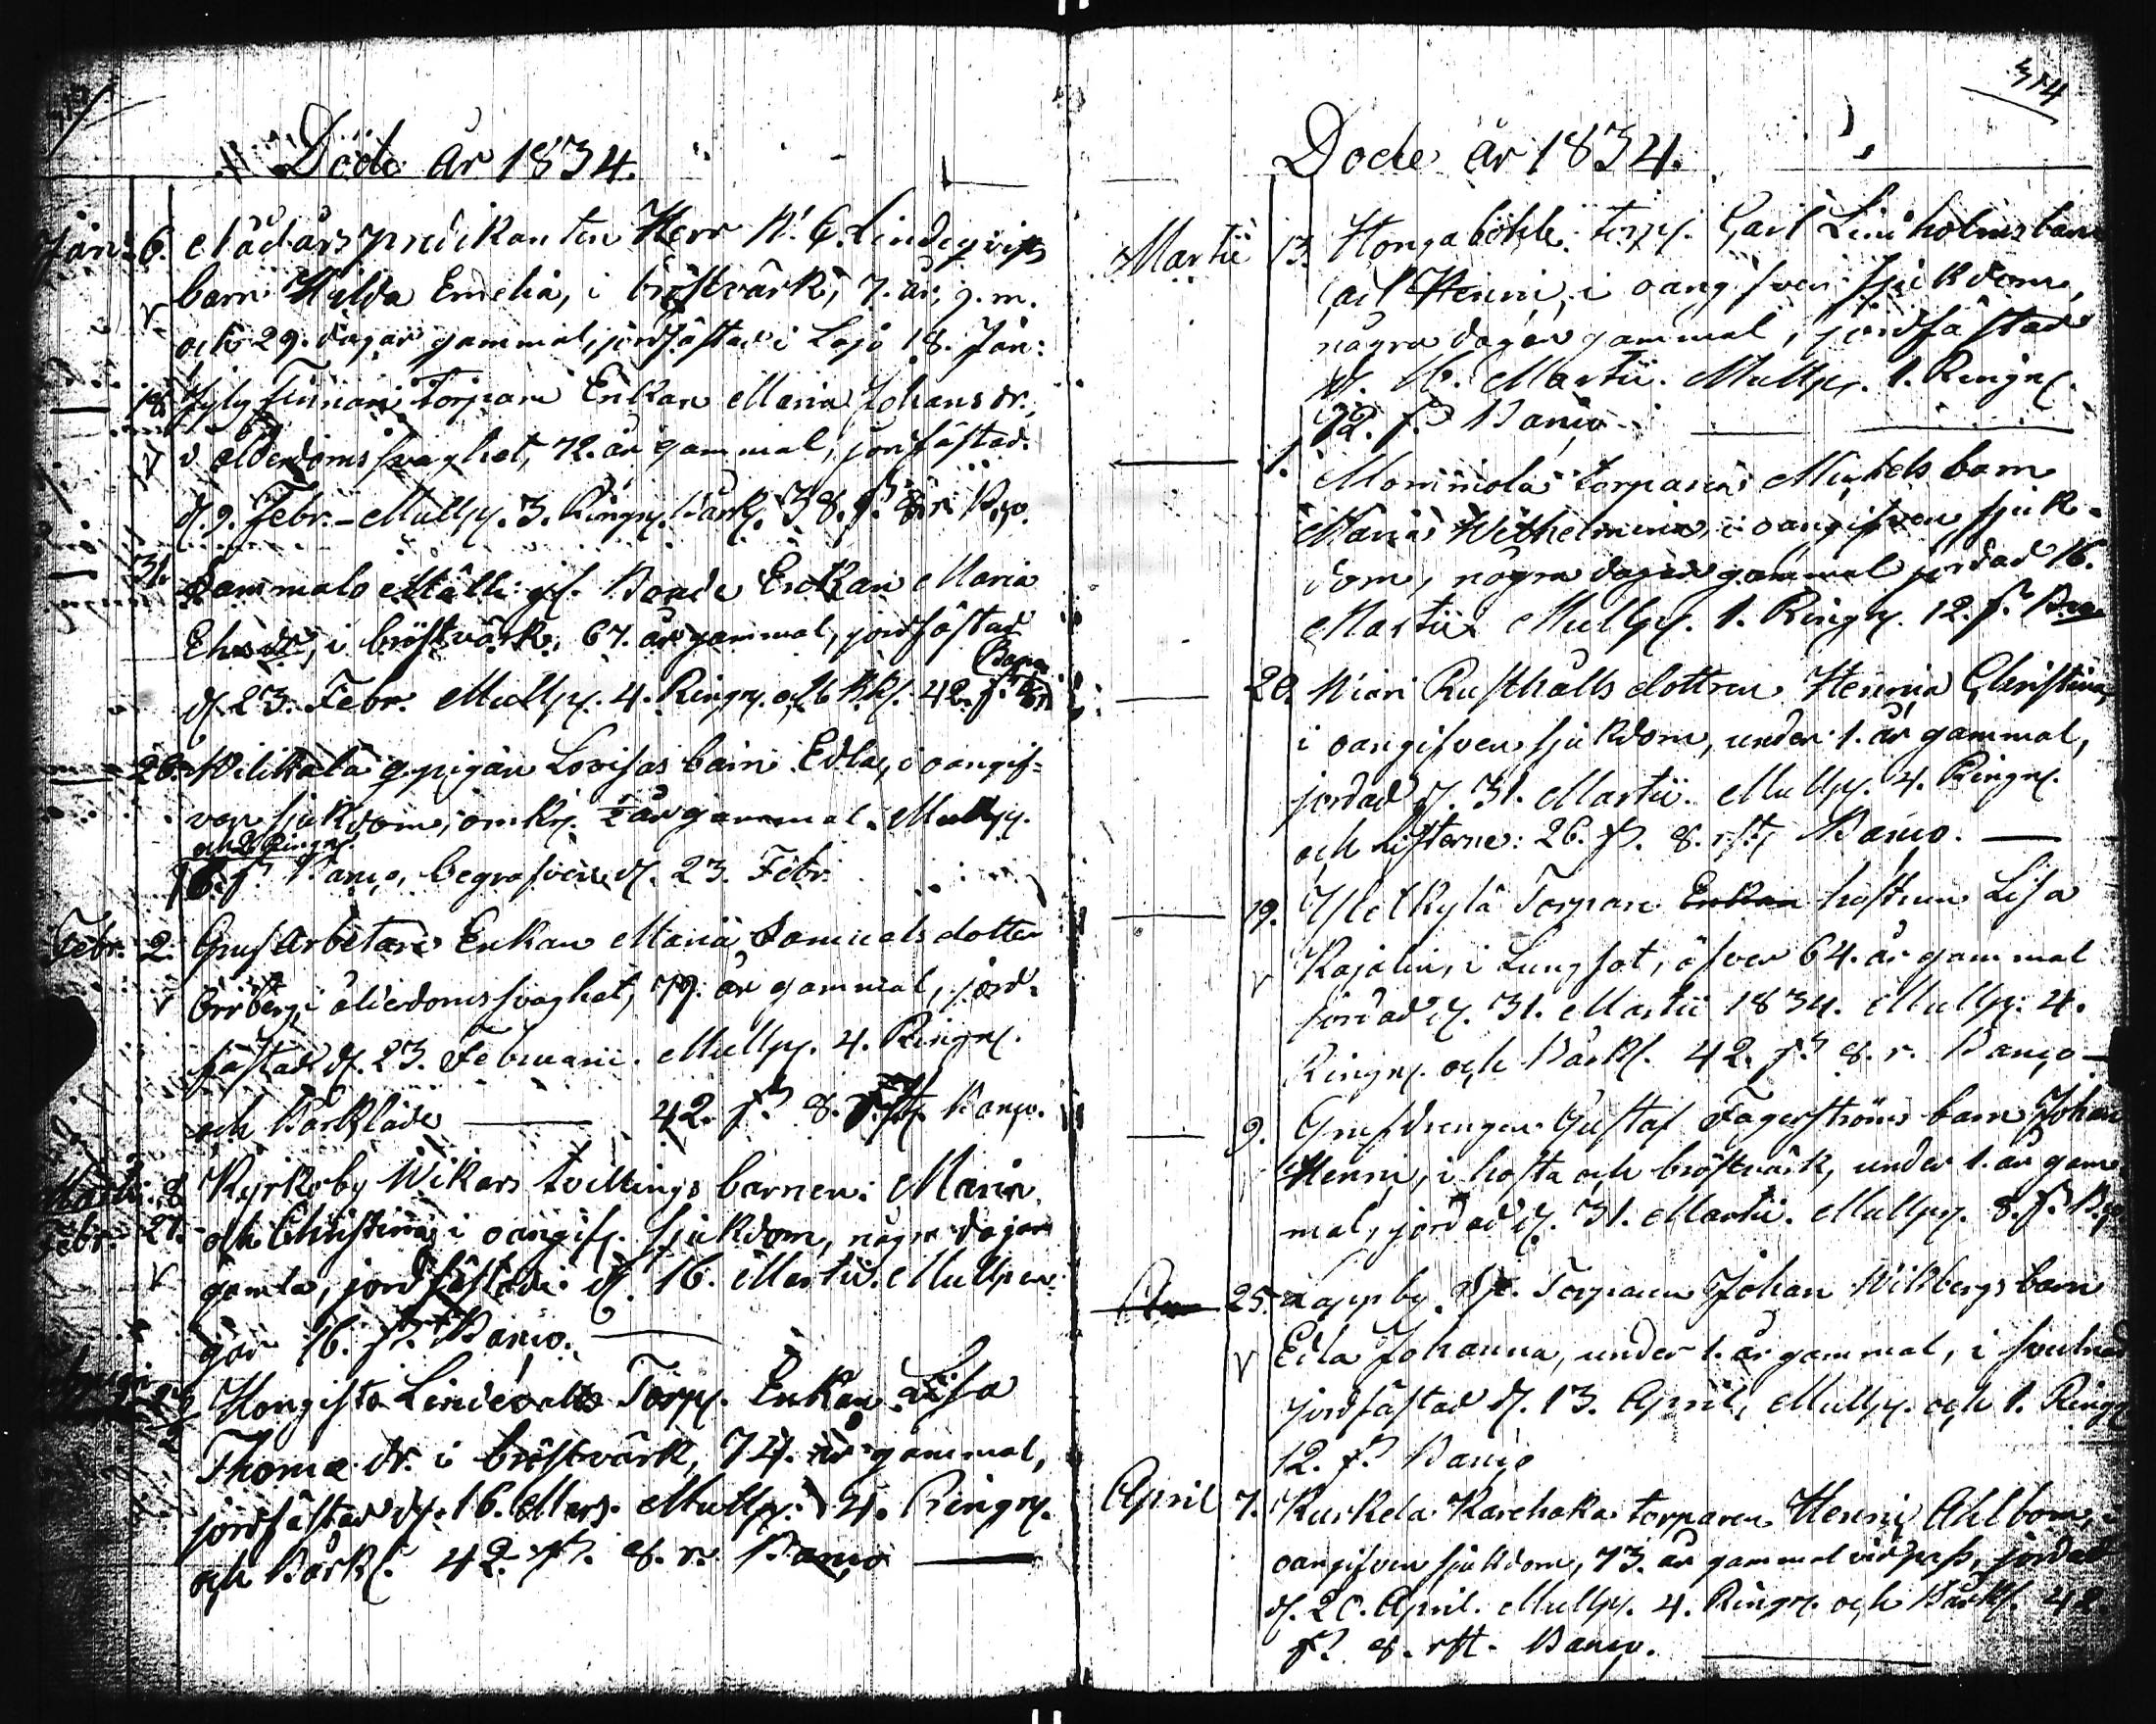 Döde år 1834.
Jan: 6. Nådårs predikanten Herr N. G. Lindeqvists
barn Hilda Emelia, i bröstvärk, 7. år, 7. m.
och 29. dagar gammal, jordfästad i Lojo 18. Jan:
18. Torpare Enkan Maria Johansdr.,
i ålderdoms svaghet, 72. år gammal, jordfästad
d. 9. Febr. Mullp. 3. Ringn. Bårkl. 38. s. 8. r. Bco.
31. Sammals Bonde Enkan Maria
i bröstvärk, 67. år gammal, jordfästad
d. 23. Febr. Mullp. 4. Ringn. och Bkl. 42. s. 8. r. Banco
20. pigan Lovisas barn Edla, i oangif-
ven sjukdom, omkr. ½ år gammal. Mullp.
och 2 Ringn.
16. s. Banco, begrafven d. 23. Febr.
Febr. 2. Grufarbetare Enkan Maria Samuelsdotter
Örrberg i ålderdomssvaghet, 79. år gammal, jord-
fästad d. 23. Februarii. Mullp. 4. Ringn.
och Bårkläde 42. s. 8. rst. Banco.
Martii 8. Kyrkoby Wikars tvillings barnen: Maria
Febr. 27. och Christina, i oangifn. sjukdom, några dagar
gamla, jordfästade d. 16. Martii. Mullpen-
gar 16. s. Banco.
Torp. Enkan Lisa
Thomæ dr. i bröstvärk, 74. år gammal,
jordfästad d. 16. Mars. Mullp. 4. Ringn.
och Bårkl. 42. s. 8. r. Banco
314
Döde år 1834.
Martii 13. Hongaböhle torp. Carl Lindholms barn
Carl Henric, i oangifven sjukdom,
några dagar gammal, jordfästad
d. 16. Martii. Mullp. 1. Ringn.
12. s. Banco
1. torparen Michels barn
Maria Wilhelmina, i oangifven sjuk-
dom, några dagar gammal jordad 16.
Martii Mullp. 1. Ringn. 12. s. Bco
20. Wiari Rusthålls dottren Henrica Christina,
i oangifven sjukdom, under 1. år gammal,
jordad d. 31. Martii. Mullp. 4. Ringn.
och 26. s. 8. rst. Banco.
19. Ylikylä Torpare Enkan hustrun Lisa
Kajalin, i Lungsot, öfver 64. år gammal
jordad d. 31. Martii 1834. Mullp. 4.
Ringn. och Bårkl. 42. s. 8. r. Banco
9. Grufdrengen Gustaf Fagerströms barn Johan
Henric, i hosta och bröstvärk, under 1. år gam-
mal, jordad d. 31. Martii. Mullp. 8. s. Bco
25. Lappby Torparen Johan Wikbergs barn
Edla Johanna, under 1. år gammal, i svulnad
jordfästad d. 13. April, Mullp. och 1. Ringn.
12. s. Banco
April 7. Kurkela Karehaka torparen Henric Ahlbom, i
oangifven sjukdom, 73. år gammal vid pass, jordad
d. 20. April. Mullp. 4. Ringn. och Bårkl. 42.
s. 8. rst. Banco.